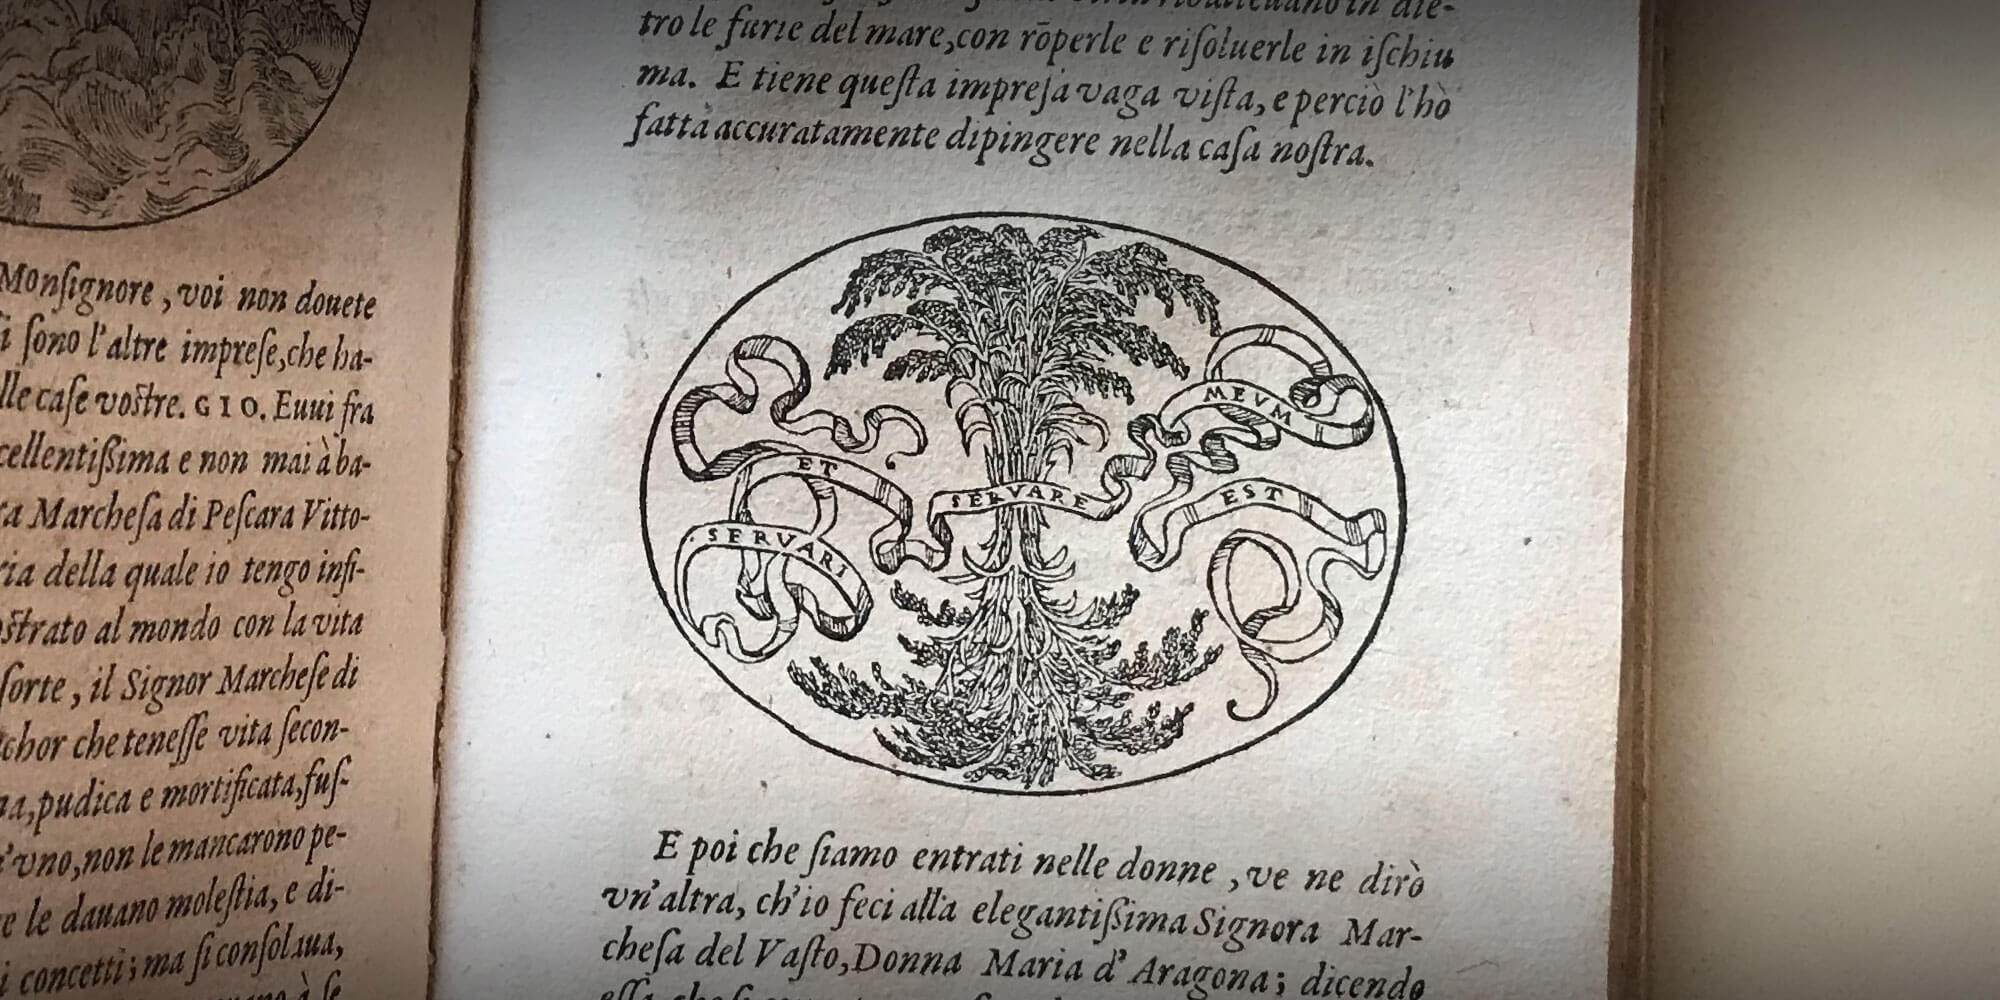 Monſignore, voi non douete
i ſono l'altre impreſe, che ha-
lle caſe voſtre. GIO. Euui fra
cellentiſſima e non mai à ba-
ra Marcheſa di Peſcara Vitto-
ria della quale io tengo infi-
oſtrato al mondo con la vita
ſorte, il Signor Marcheſe di
chor che teneſſe vita ſecon-
na, pudica e mortificata, fuſ-
n'vno, non le mancarono pe-
e le dauano moleſtia, e di-
i concetti; ma ſi conſolaua,
à ſe
in die-
tro le furie del mare, con rōperle e riſoluerle in iſchiu
ma. E tiene queſta impreſa vaga viſta, e perciò l'hò
fatta accuratamente dipingere nella caſa noſtra.
SERVARI
ET
SERVARE
MEVM
EST
E poi che ſiamo entrati nelle donne, ve ne dirò
vn'altra, ch'io feci alla elegantiſſima Signora Mar-
cheſa del Vaſto, Donna Maria d'Aragona; dicendo